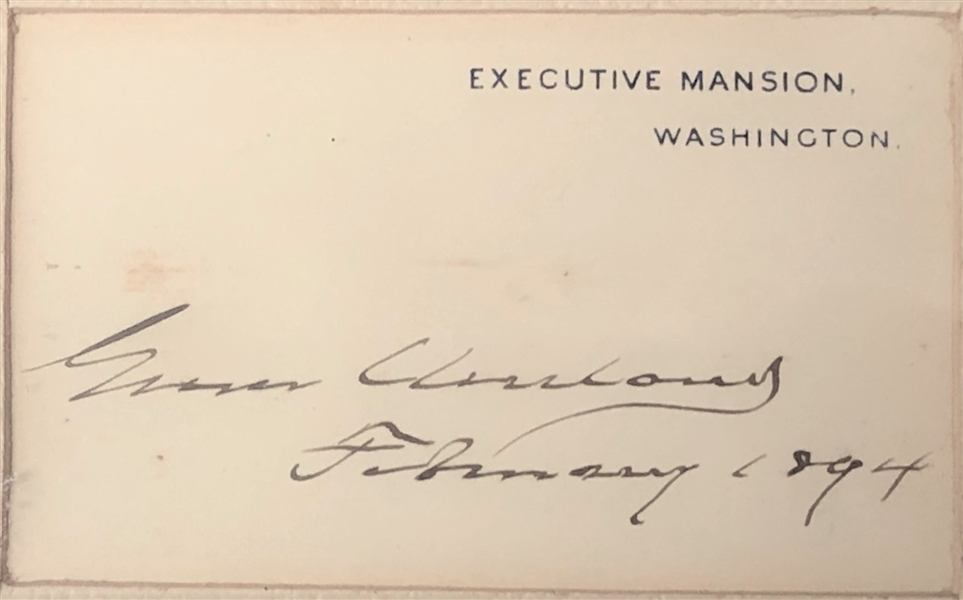 EXECUTIVE MANSION,
WASHINGTON.
Grover Cleveland
February 1894